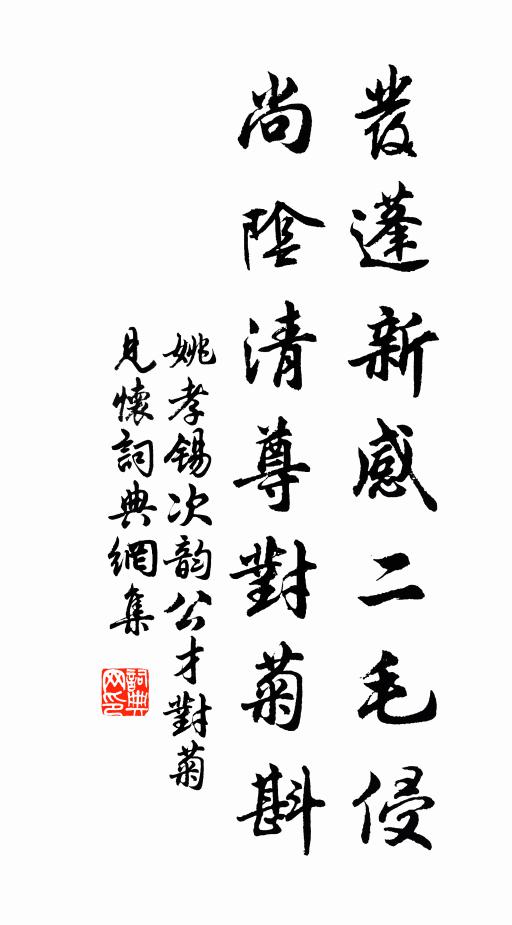 發蓬新感二毛侵
尚阻清尊對菊斟
姚孝錫次韵公才對菊
見懷詞典網集
詞典網印